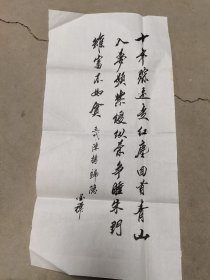 十年踪迹走红尘回首青山
入梦频紫绶纵荣争睡朱门
虽富不如贫 陈抟归隐